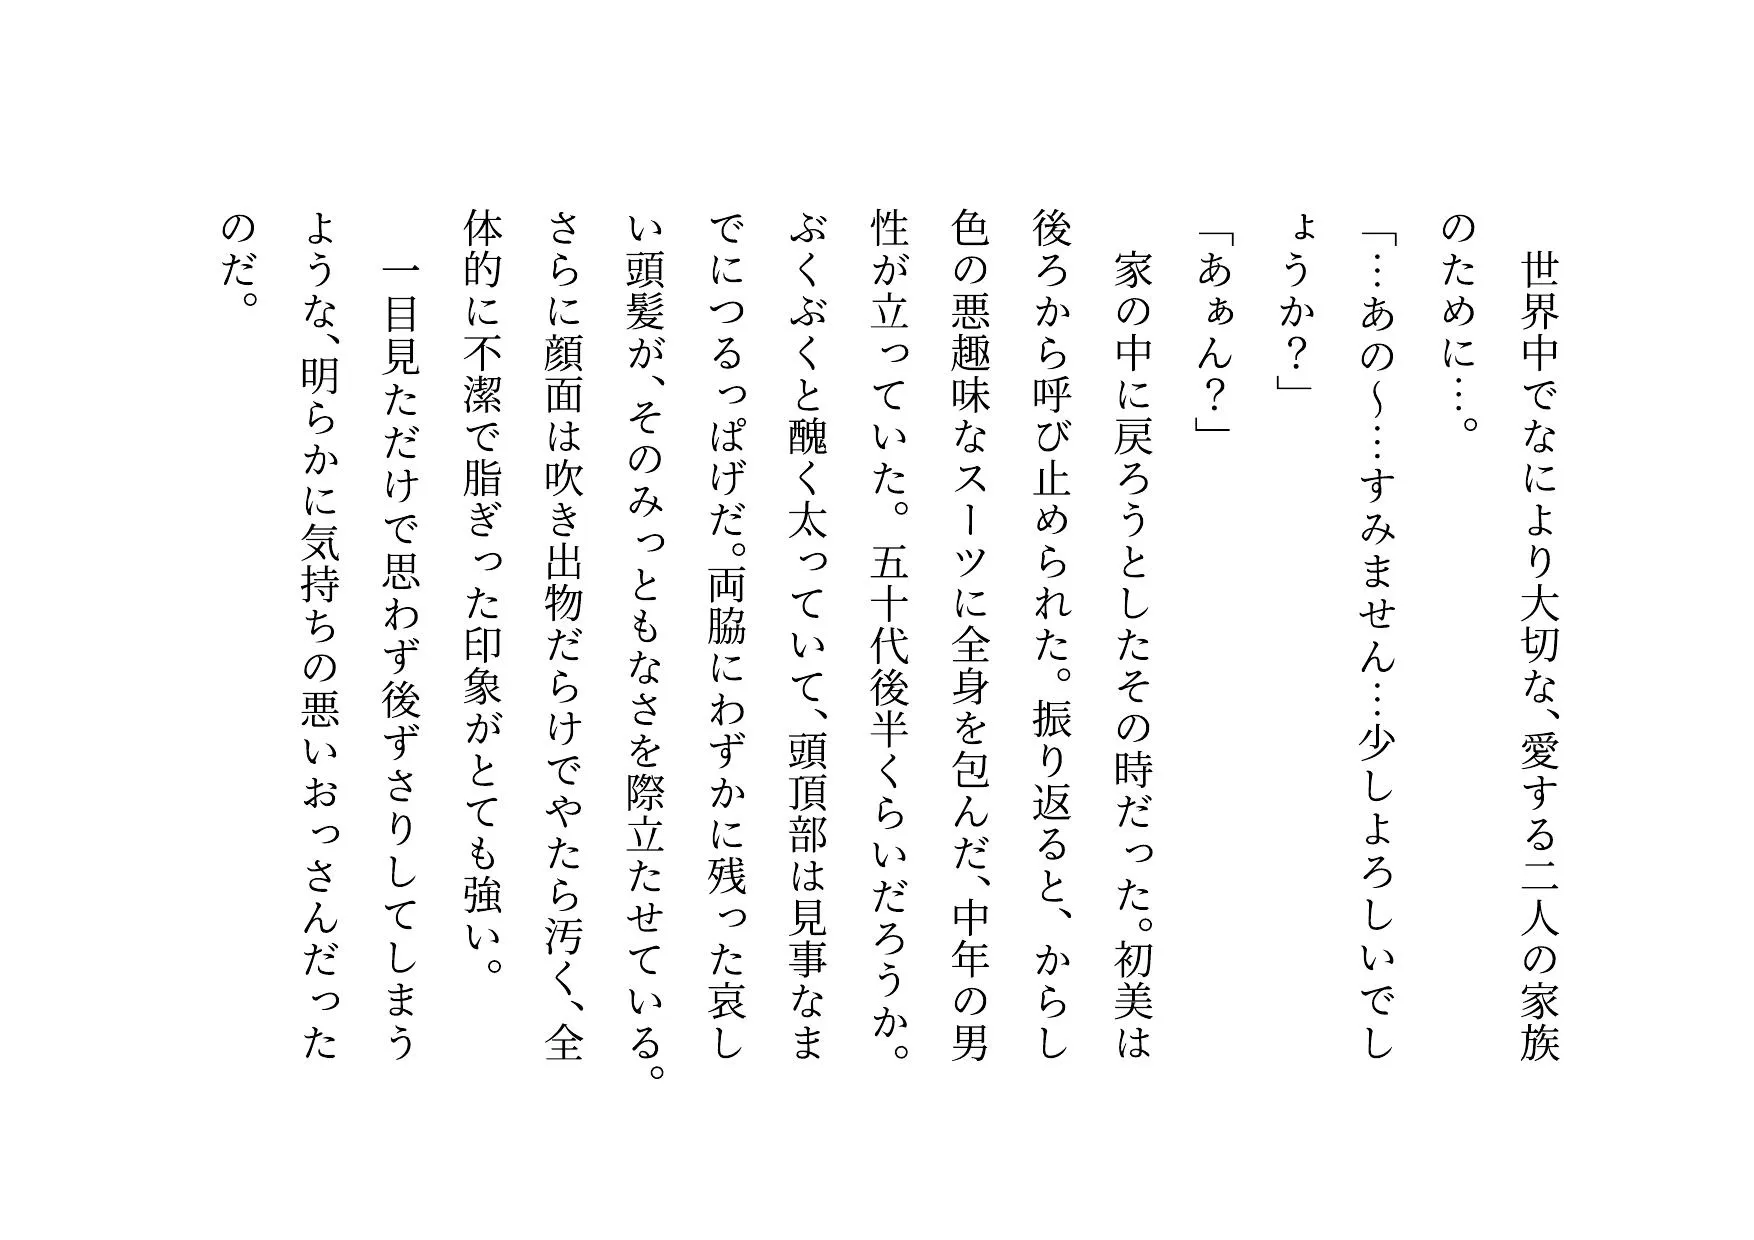 世界中でなにより大切な、愛する二人の家族
のために…。
「…あの～…すみません…少しよろしいでし
ょうか？」
「あぁん？」
家の中に戻ろうとしたその時だった。初美は
後ろから呼び止められた。振り返ると、からし
色の悪趣味なスーツに全身を包んだ、中年の男
性が立っていた。五十代後半くらいだろうか。
ぶくぶくと醜く太っていて、頭頂部は見事なま
でにつるっぱげだ。両脇にわずかに残った哀し
い頭髪が、そのみっともなさを際立たせている。
さらに顔面は吹き出物だらけでやたら汚く、全
体的に不潔で脂ぎった印象がとても強い。
一目見ただけで思わず後ずさりしてしまう
ような、明らかに気持ちの悪いおっさんだった
のだ。